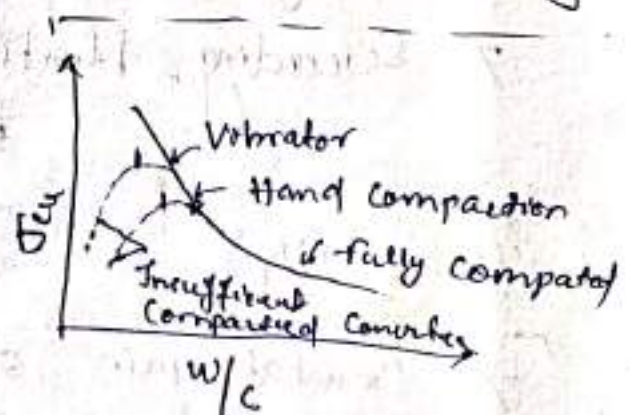 Vibrator
Hand compaction
fully compated
σcu
Insufficient
Compacted Concrete
W/c